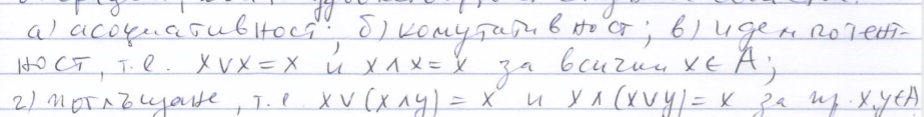 а) асоциативност; б) комутативност; в) идемпотент-
ност, т.е. x∨x=x и x∧x=x за всички x∈A;
г) поглъщане, т.е. x∨(x∧y)=x и x∧(x∨y)=x за пр. x,y∈A